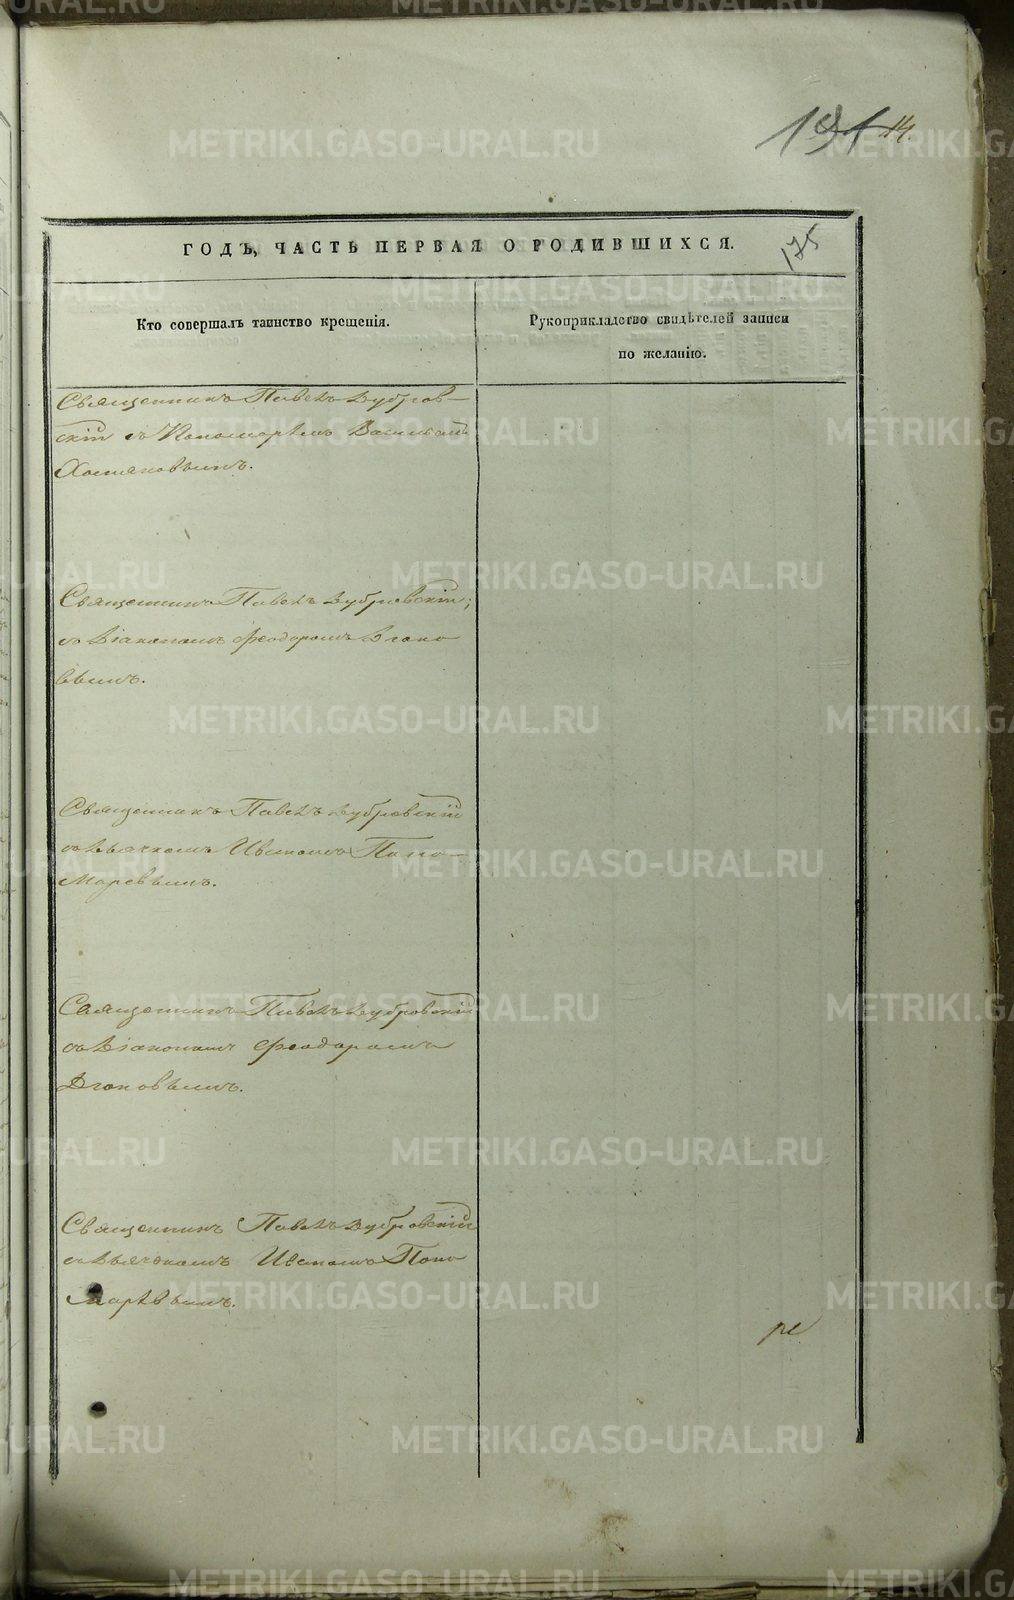 14.
ГОДЪ, ЧАСТЬ ПЕРВАЯ О РОДИВШИХСЯ.
175
Кто совершалъ таинство крещенія.
Рукоприкладство свидѣтелей записи
по желанію.
Священникъ Павелъ Дубров-
скій съ Пономаремъ Василіемъ
Хомяковымъ.
Священникъ Павелъ Дубровскій;
съ Діакономъ Феодоромъ
вымъ.
Священникъ Павелъ Дубровскій
съ Дьячкомъ Иваномъ Поно-
маревымъ.
Священникъ Павелъ Дубровскій
съ Діакономъ Феодоромъ
Священникъ Павелъ Дубровскій
съ Дьячкомъ Иваномъ Поно
маревымъ.
METRIKI.GASO-URAL.RU